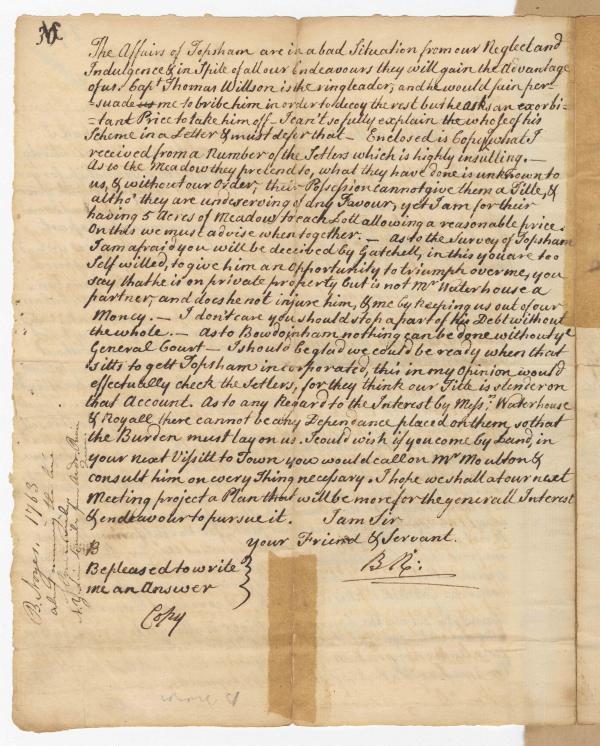 N
The Affairs of Topsham are in a bad Situation from our Neglect and
Indulgence & in Spite of all our Endeavours they will gain the Advantage
of us. Capt Thomas Willson is the ringleader, and he would fain per-
suade us me to bribe him in order to decoy the rest but he asks an exorbi-
=tant Price to take him off - I can't so fully explain the whole of his
Scheme in a Letter & must defer that - Enclosed is Copy of what I
received from a Number of the Setlers which is highly insulting. -
As to the Meadow they pretend to, what they have done is unknown to
us, & without our Order, their Possession cannot give them a Title, &
altho' they are undeserving of any Favour, yet I am for their
having 5 Acres of Meadow to each Lott allowing a reasonable price.
On this we must advise when together. - As to the Survey of Topsham
I am afraid you will be deceived by Gatchell, in this you are too
Self willed, to give him an Opportunity to triumph over me, you
say that he is on private property but is not Mr Waterhouse a
partner, and does he not injure him, & me by keeping us out of our
Money. - I don't care you should stop a part of his Debt without
the whole. - As to Bowdoinham nothing can be done without ye
General Court - I should be glad we could be ready when that
sitts to gett Topsham incorporated, this in my opinion would
effectually check the Setlers, for they think our Title is slender on
that Account. As to any Regard to the Interest by Messrs Waterhouse
& Royall there cannot be any Dependance placed on them, so that
the Burden must lay on us. I could wish if you come by Land, in
your next Vissitt to Town you would call on Mr Moulton &
consult him on every Thing necessary. I hope we shall at our next
Meeting project a Plan that will be more for the generall Interest
& endeavour to pursue it. I am Sir
your Friend & Servant.
B N:
Be pleased to write
me an Answer
Copy
1763